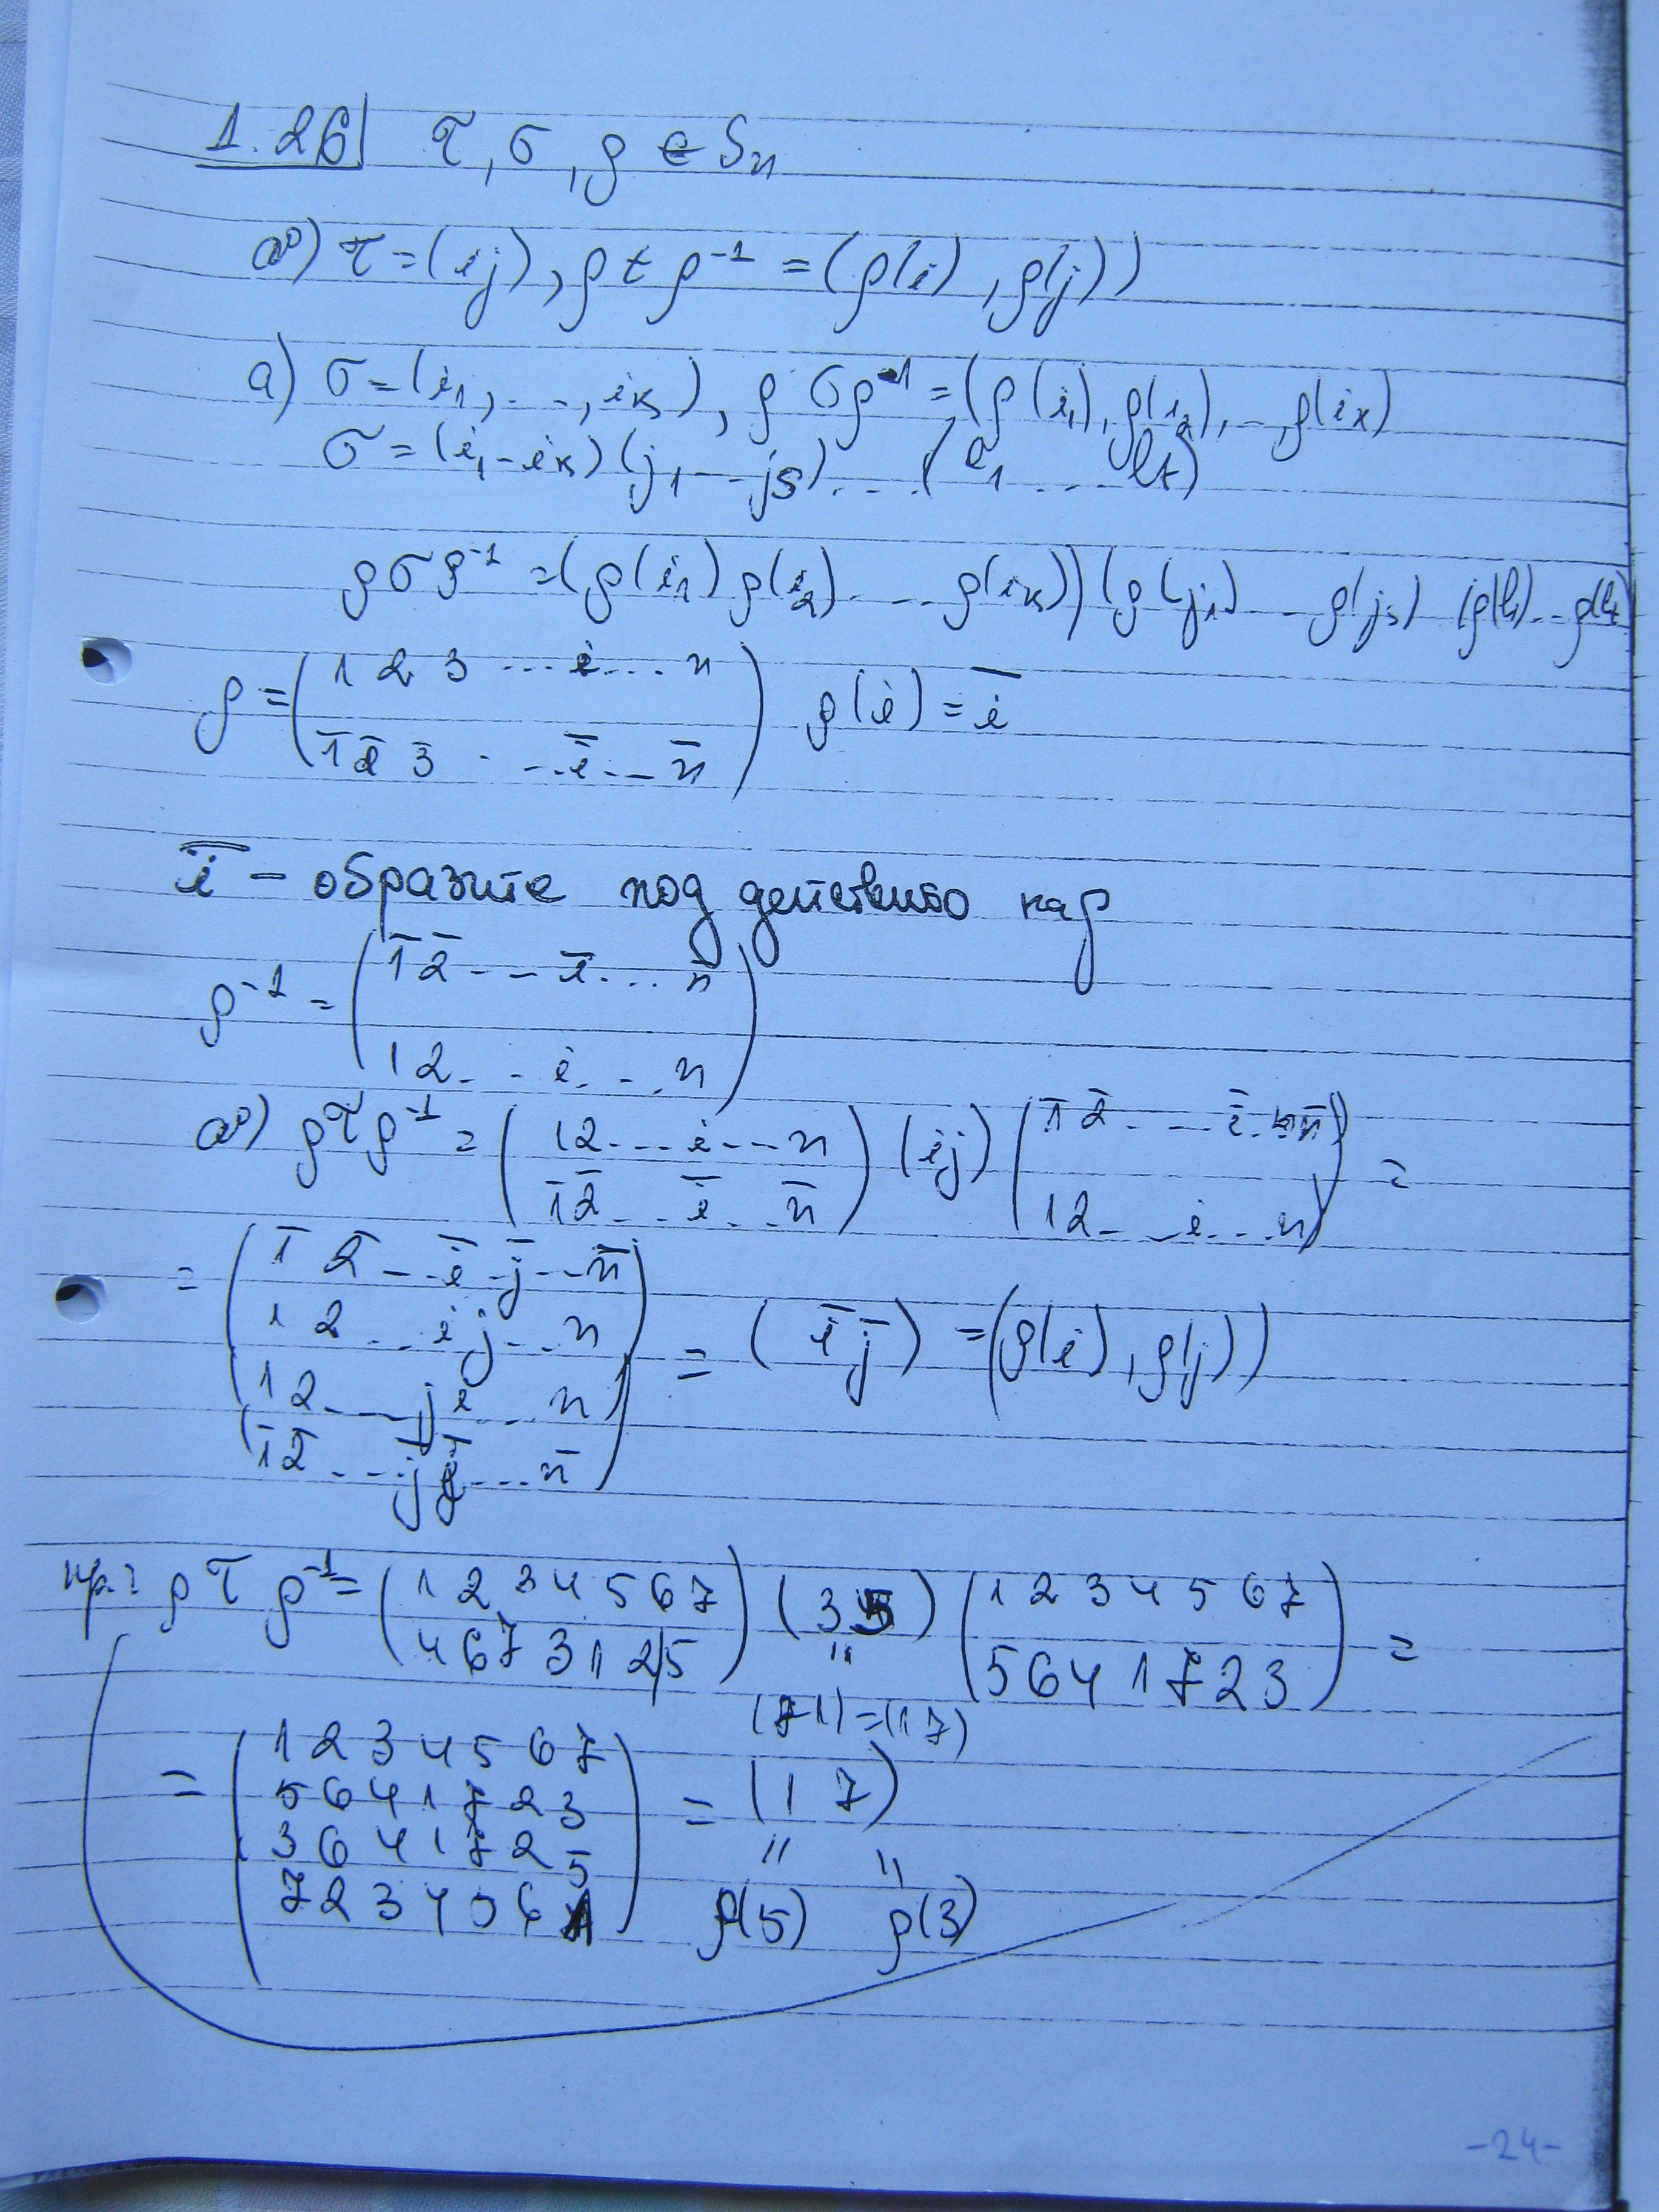 1.26 | τ, σ, ρ ∈ Sn
a⁰) τ = (i j), ρ t ρ⁻¹ = (ρ(i), ρ(j))
a) σ = (i₁, ..., iₖ), ρ σ ρ⁻¹ = (ρ(i₁), ρ(i₂), ... ρ(iₖ)
σ = (i₁ - iₖ) (j₁ -- jₛ) ... (l₁ ... lₜ)
ρσρ⁻¹ = (ρ(i₁) ρ(i₂) ... ρ(iₖ)) (ρ(j₁) - ρ(jₛ) (ρ(l₁) .. ρ(lₜ)
1 2 3 ... i ... n
ρ = ( ) ρ(i) = i̅
1̅ 2̅ 3̅ ... i̅ ... n̅
i̅ - образите под действието на ρ
1̅ 2̅ - - i̅ ... n̅
ρ⁻¹ = ( )
1 2 - - i - - n
a⁰) ρτρ⁻¹ = ( 1 2 ... i ... n ) (i j) ( 1̅ 2̅ - - i̅ .. n̅ ) =
1̅ 2̅ - - i̅ - - n̅ 1 2 - - i ... n
= ( 1̅ 2̅ - - i̅ - j̅ - - n̅
1 2 .. i j - - n
= ( i̅ j̅ ) = (ρ(i), ρ(j))
1 2 - - j i ... n
1̅ 2̅ - - - j̅ i̅ ... n̅ )
пр.: ρ τ ρ⁻¹ = ( 1 2 3 4 5 6 7 ) (3 5) ( 1 2 3 4 5 6 7 ) =
4 6 7 3 1 2 5 " 5 6 4 1 7 2 3
(7 1) = (1 7)
1 2 3 4 5 6 7
= ( 5 6 4 1 7 2 3 ) = (1 7)
3 6 4 1 7 2 5 " "
7 2 3 4 5 6 1 ρ(5) ρ(3)
-24-